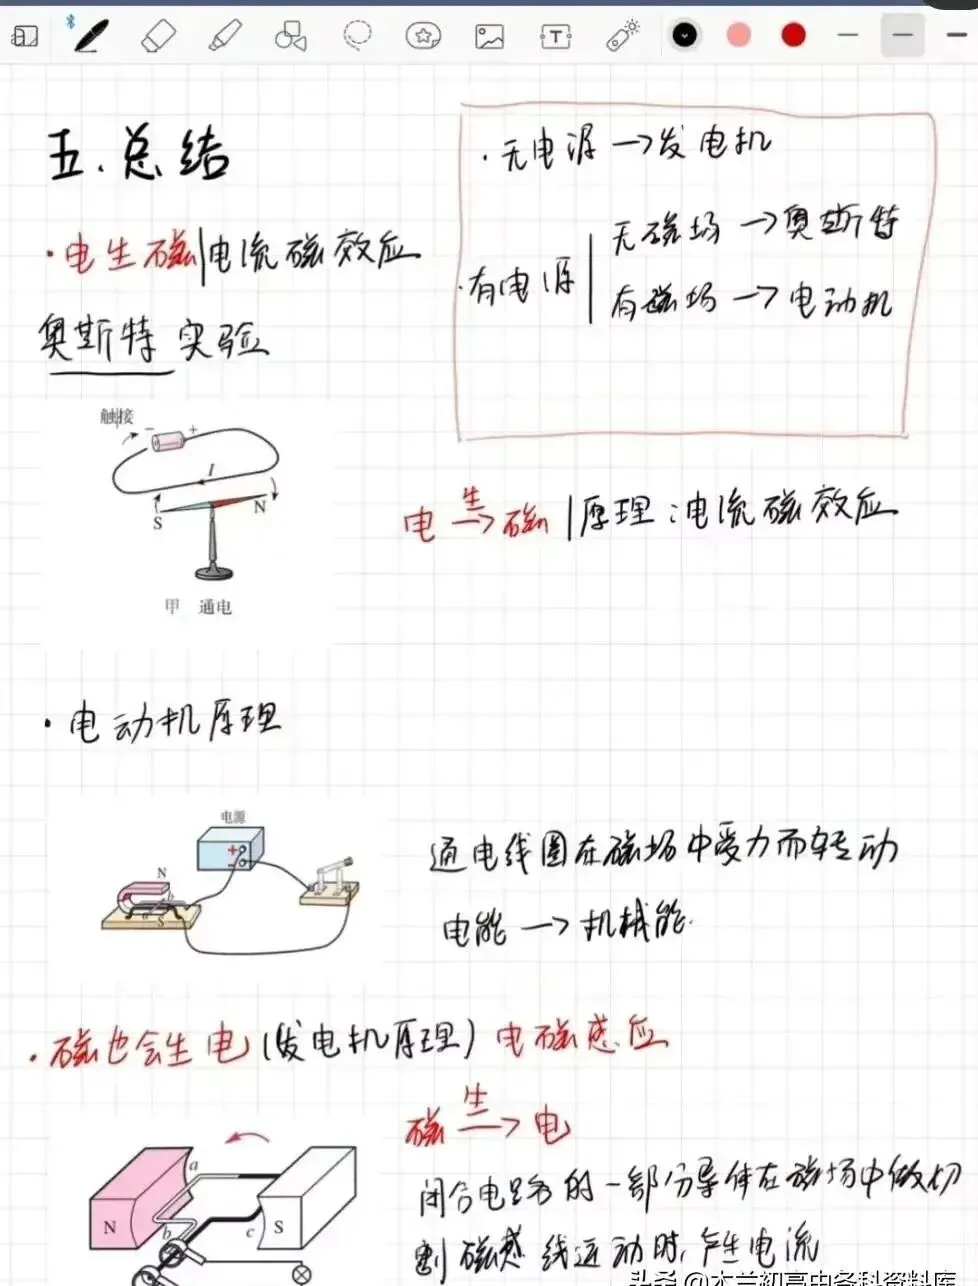 五.总结
·无电源→发电机
·有电源
无磁场→奥斯特
有磁场→电动机
·电生磁|电流磁效应
奥斯特实验
触接
- +
I
S N
甲 通电
电 生→ 磁 |原理:电流磁效应
·电动机原理
电源
+
-
N
S
通电线圈在磁场中受力而转动
电能→机械能
·磁也会生电(发电机原理) 电磁感应
磁 生→ 电
a
N b c S
闭合电路的一部分导体在磁场中做切
割磁感线运动时,产生电流
头条 @木兰初高中各科资料库